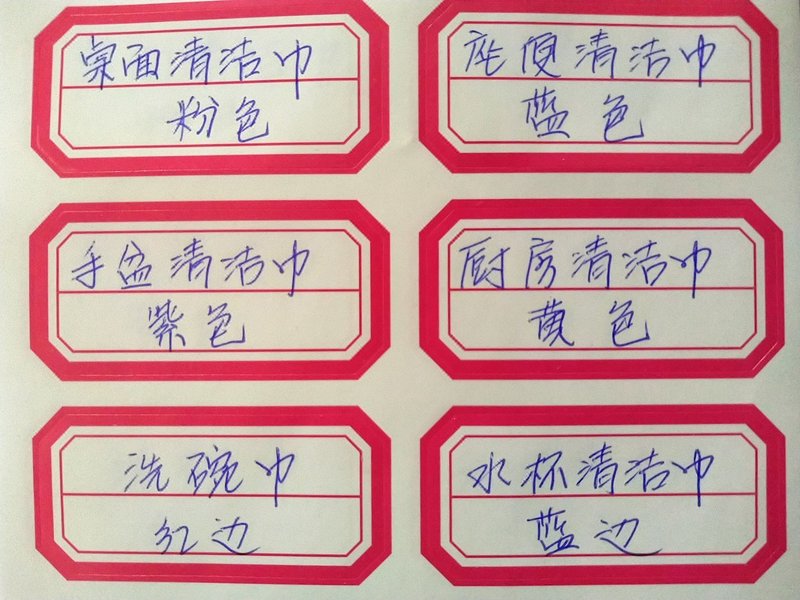 桌面清洁巾
粉色
座便清洁巾
蓝色
手盆清洁巾
紫色
厨房清洁巾
黄色
洗碗巾
红边
水杯清洁巾
蓝边